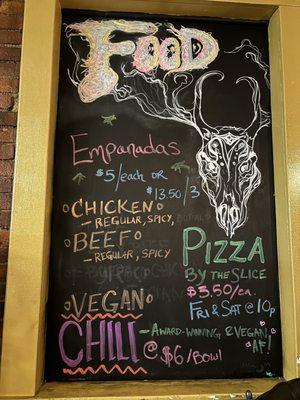 FOOD
Empanadas
$5/each or
$13.50/3
CHICKEN
- REGULAR, SPICY,
BEEF
- REGULAR, SPICY
PIZZA
BY THE SLICE
$3.50/ea.
FRI & SAT @ 10p
VEGAN
CHILI - AWARD-WINNING & VEGAN
AF!
@ $6/BOWL